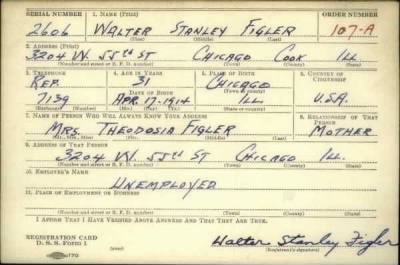 SERIAL NUMBER 1. NAME (Print) ORDER NUMBER
2606 WALTER STANLEY FIGLER 107-A
(First) (Middle) (Last)
2. ADDRESS (Print)
3204 W. 55TH ST CHICAGO COOK ILL
(Number and street or R. F. D. number) (Town) (County) (State)
3. TELEPHONE 4. AGE IN YEARS 5. PLACE OF BIRTH 6. COUNTRY OF CITIZENSHIP
REP. 31 CHICAGO
DATE OF BIRTH (Town or county)
7139 APR. 17-1914 ILL U.S.A.
(Exchange) (Number) (Mo.) (Day) (Yr.) (State or country)
7. NAME OF PERSON WHO WILL ALWAYS KNOW YOUR ADDRESS 8. RELATIONSHIP OF THAT PERSON
MRS. THEODOSIA FIGLER MOTHER
(Mr., Mrs., Miss) (First) (Middle) (Last)
9. ADDRESS OF THAT PERSON
3204 W. 55TH ST CHICAGO ILL.
(Number and street or R. F. D. number) (Town) (County) (State)
10. EMPLOYER'S NAME
UNEMPLOYED
11. PLACE OF EMPLOYMENT OR BUSINESS
(Number and street or R. F. D. number) (Town) (County) (State)
I AFFIRM THAT I HAVE VERIFIED ABOVE ANSWERS AND THAT THEY ARE TRUE.
REGISTRATION CARD
D. S. S. Form 1 Walter Stanley Figler
(Registrant's signature)